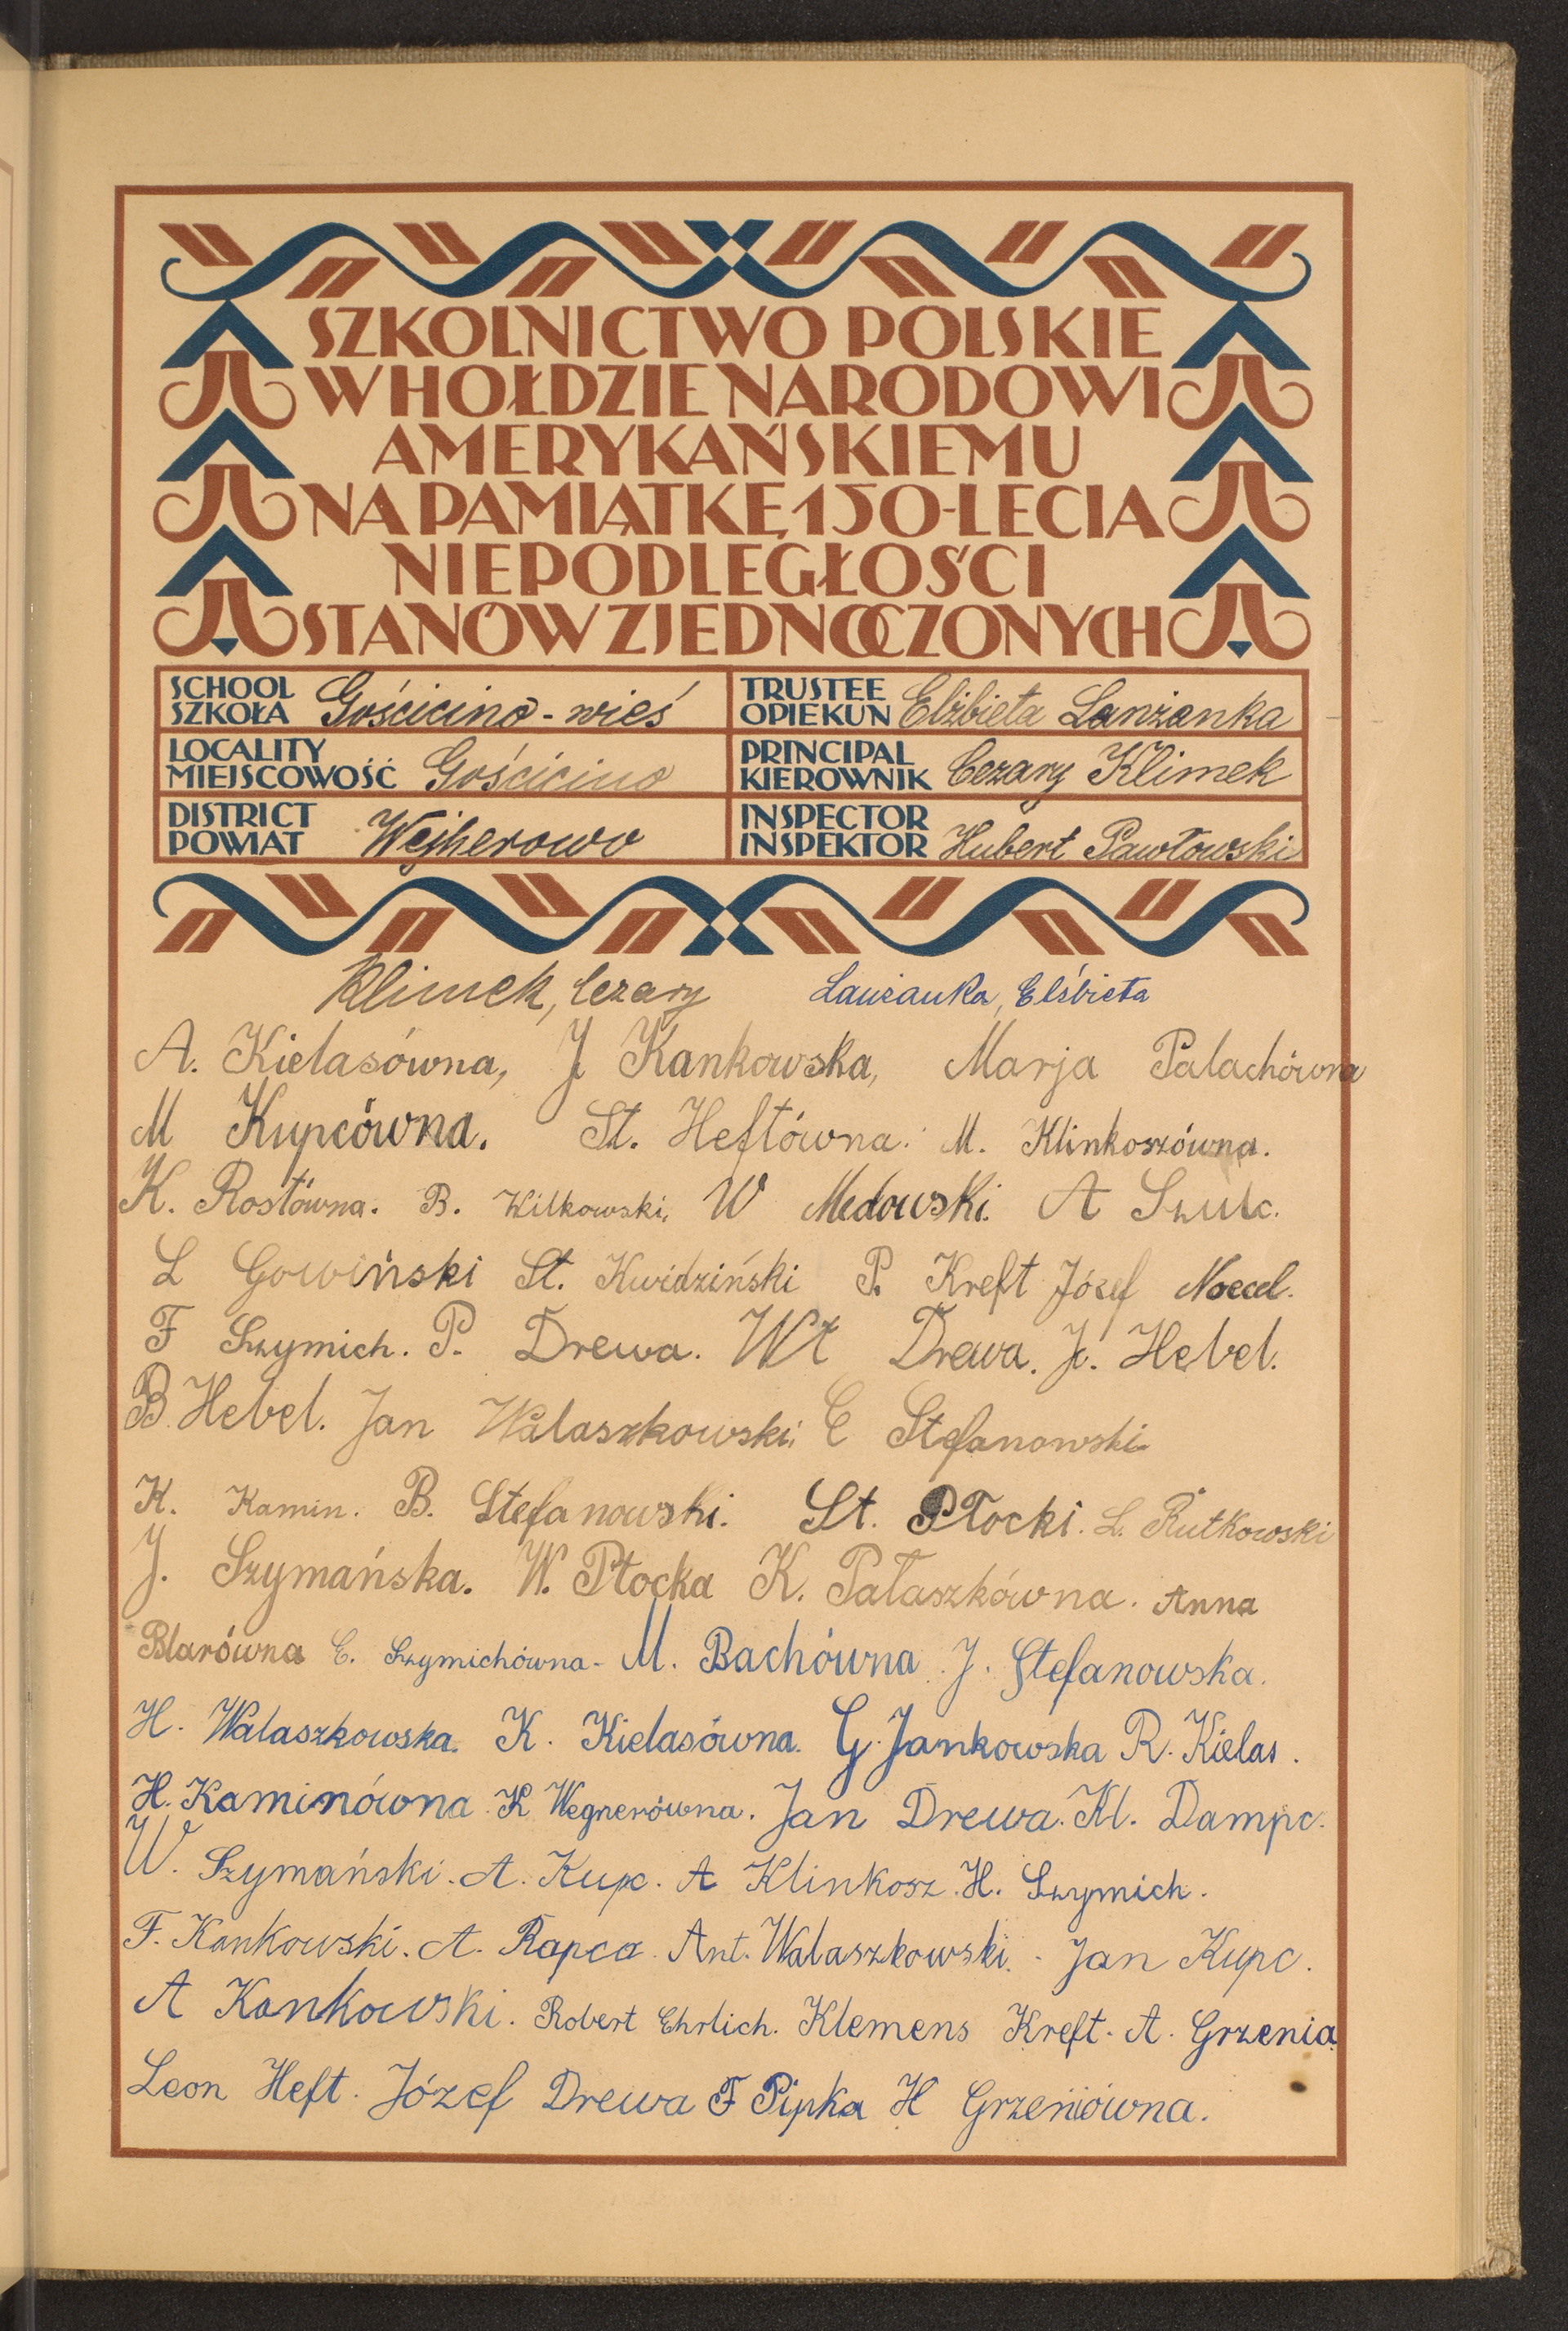 SZKOLNICTWO POLSKIE
W HOŁDZIE NARODOWI
AMERYKAŃSKIEMU
NA PAMIĄTKĘ 150-LECIA
NIEPODLEGŁOŚCI
STANÓW ZJEDNOCZONYCH
SCHOOL SZKOŁA Gościcino - wieś
TRUSTEE OPIEKUN Elżbieta Lanżanka
LOCALITY MIEJSCOWOŚĆ Gościcino
PRINCIPAL KIEROWNIK Cezary Klimek
DISTRICT POWIAT Wejherowo
INSPECTOR INSPEKTOR Hubert Pawłowski
Klimek, Cezary Lanżanka, Elżbieta
A. Kielasówna, J Kankowska, Marja Palachówna
M Kupcówna. St. Heftówna. M. Klinkoszówna.
K. Rostówna. B. Wilkowski, W Medowski. A Szulc.
L Gowiński St. Kwidziński P. Kreft Józef
F Szymich. P. Drewa. Wł Drewa. J. Hebel.
B. Hebel. Jan Walaszkowski, C Stefanowski
K. Kamin. B. Stefanowski. St. Płocki. L. Rutkowski
J. Szymańska. W. Płocka K. Pałaszkówna. Anna
Blarówna C. Szymichówna - M. Bachówna. J. Stefanowska.
H. Walaszkowska. K. Kielasówna. G. Jankowska R. Kielas.
H. Kaminówna. K. Wegnerówna. Jan Drewa. Kl. Dampc.
W. Szymański. A. Kupc. A Klinkosz. H. Szymich.
F. Kankowski. A. Rapca. Ant. Walaszkowski. - Jan Kupc.
A Kankowski. Robert Ehrlich. Klemens Kreft. A. Grzenia
Leon Heft. Józef Drewa F Pipka H Grzeniówna.